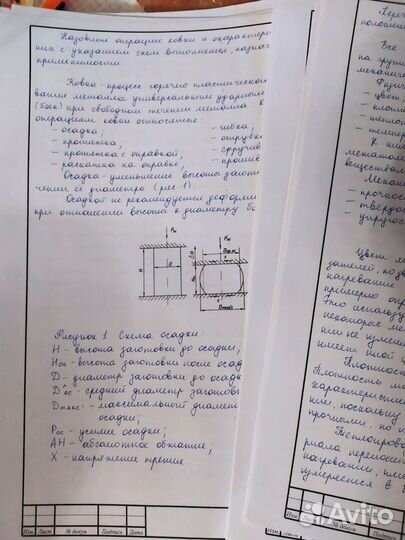 Назовите операции ковки и охарактери
с указанием схем выполнения, назнач
применимости.
Ковка - процесс горячей пластической
вания металла универсальным ударным
(боек) при свободном течении металла. К
операциям ковки относятся:
- осадка;
- гибка;
- протяжка;
- отрубка
- протяжка с оправкой;
- скручив
- раскатка на оправке;
- прошив
Осадка - уменьшение высоты загот
чении её диаметра (рис. 1).
Осадкой не рекомендуется деформи
при отношении высоты к диаметру бо
Pос
Pос
H
D
ΔH
Hос
Dмакс
Рисунок 1. Схема осадки:
H - высота заготовки до осадки;
Hос - высота заготовки после осад
D - диаметр заготовки до осадк
D'ос - средний диаметр заготов
Dмакс - максимальный диамет
осадки;
Pос - усилие осадки;
ΔH - абсолютное обжатие;
X - напряжение трение.
Изм
Лист
№ докум
Подпись
Дата
Переч
положени
Все
на груп
механич
Физич
- цвет;
- плотн
- теплот
- темпер
К
механич
веществам
Механ
- прочнос
- твердос
- упругос
Цвет ме
зателей, ко
нагревание
примерно опр
Это использу
некоторые ме
или не измен
имеет свой ц
Плотность
Плотность ме
характеристи
ми, поскольку
прочными, но
Теплопрово
риала переноси
нагревании, и
измеряется в
Изм.
№ докум
Подпись
Avito